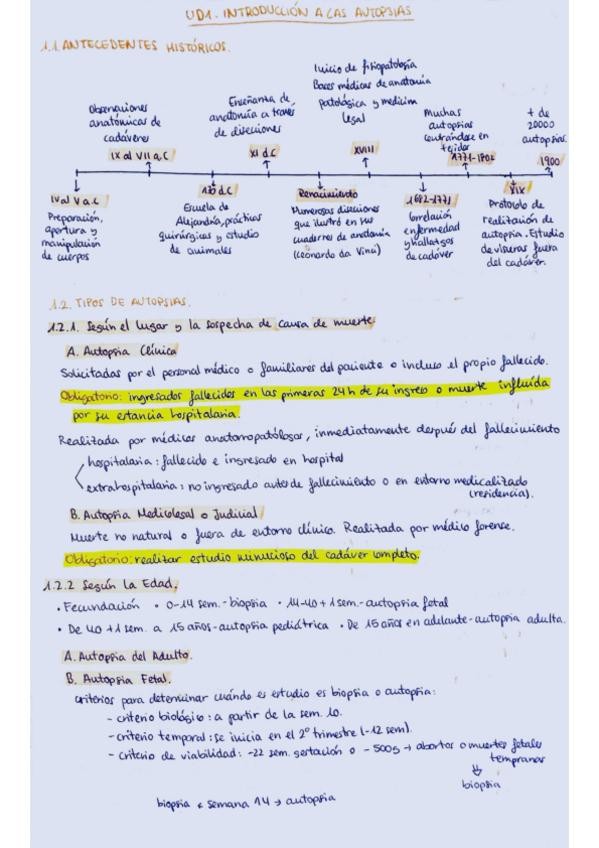 UD1. INTRODUCCIÓN A LAS AUTOPSIAS
1.1. ANTECEDENTES HISTÓRICOS.
Observaciones
anatómicas de
cadáveres
IX al VII a.C
Enseñanza de
anatomía a través
de disecciones
XI d.C
Inicio de fisiopatología
Bases médicas de anatomía
patológica y medicina
legal
XVIII
Muchas
autopsias
centrándose en
tejidos
1771-1802
+ de
20000
autopsias.
1900
IV al V a.C
Preparación,
apertura y
manipulación
de cuerpos
d.C
Escuela de
Alejandría, prácticas
quirúrgicas y estudio
de animales
Renacimiento
Numerosas disecciones
que ilustró en sus
cuadernos de anatomía
(Leonardo da Vinci)
1682-1771
Correlación
enfermedad
y hallazgos
de cadáver
XIX
Protocolo de
realización de
autopsia. Estudio
de vísceras fuera
del cadáver.
1.2. TIPOS DE AUTOPSIAS.
1.2.1. Según el lugar y la sospecha de causa de muerte
A. Autopsia Clínica
Solicitadas por el personal médico o familiares del paciente o incluso el propio fallecido.
Obligatorio: ingresados fallecidos en las primeras 24h de su ingreso o muerte influida
por su estancia hospitalaria.
Realizada por médicos anatomopatólogos, inmediatamente después del fallecimiento
hospitalaria: fallecido e ingresado en hospital
extrahospitalaria: no ingresado antes de fallecimiento o en entorno medicalizado
(residencia).
B. Autopsia Medicolegal o Judicial
Muerte no natural o fuera de entorno clínico. Realizada por médico forense.
Obligatorio: realizar estudio minucioso del cadáver completo.
1.2.2 Según la Edad.
• Fecundación • 0-14 sem.- biopsia • 14-40+1 sem.- autopsia fetal
• De 40+1 sem. a 15 años- autopsia pediátrica • De 15 años en adelante- autopsia adulta.
A. Autopsia del Adulto.
B. Autopsia Fetal.
Criterios para determinar cuándo es estudio es biopsia o autopsia:
- criterio biológico: a partir de la sem. 10.
- criterio temporal: se inicia en el 2º trimestre (-12 sem).
- criterio de viabilidad: -22 sem. gestación o - 500g → abortos o muertes fetales
tempranas
⇓
biopsia
biopsia < semana 14 → autopsia